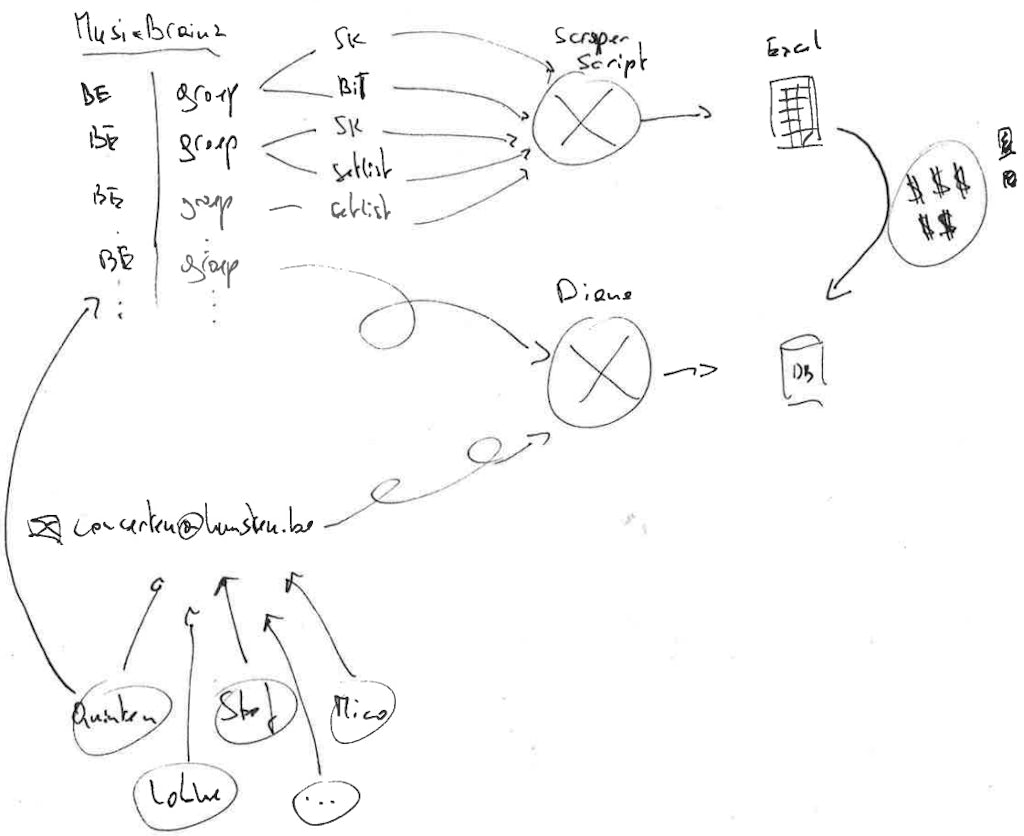 MusicBrainz
BE groep SK
BiT
BE groep SK
setlist
BE groep setlist
BE groep
Scraper
Script
Excel
$ $ $
$ $
Diane
DB
concerten@kunsten.be
Quinten
Stef
Mico
...